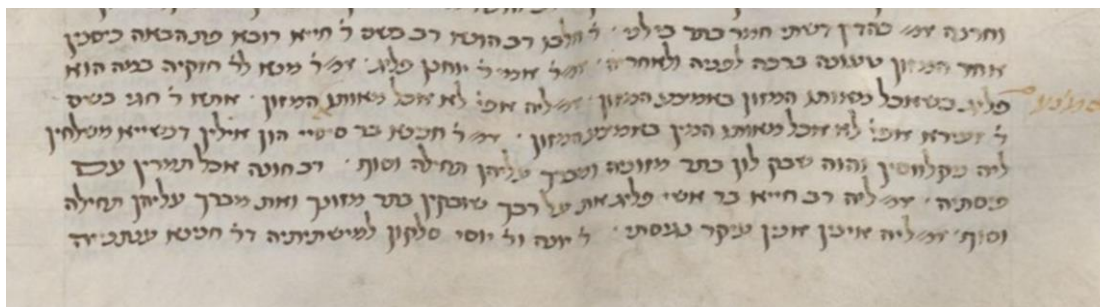 וחרנה אמ׳ כהדין דשתי חמר בתר בילני ׳ ר׳ חלבו רב הונא רב בשם ר׳ חייא רובא פת הבאה כיסנין
אחר המזון טעונה ברכה לפניה ולאחריה ׳ א״ר אמי ר׳ יוחנן פליג ׳ א״ר מנא לר׳ חזקיה במה הוא
פליג כשאכל מאותו המין באמצע המזון ׳ אמ׳ ליה אפי׳ לא אכל מאותו המזון ׳ אתא ר׳ חגי בשם
ר׳ זעירא אפי׳ לא אכל מאותו המין באמצע המזון ׳ א״ר חנינא בר סיסיי הון אילין דנשייא משלחין
ליה ניקלווסין והוה שבק לון בתר מזוניה ומברך עליהן תחילה וסוף ׳ רב חונה אכל תמרין עם
פיסתיה ׳ אמ׳ ליה רב חייא בר אשי פליג את על רבך שובקין בתר מזונך ואת מברך עליהן תחילה
וסוף ׳ אמ׳ ליה אינין אינין עיקר נגיסתי ׳ ר׳ יונה ור׳ יוסי סלקון למישתיתיה דר׳ חנינא ענתנייה